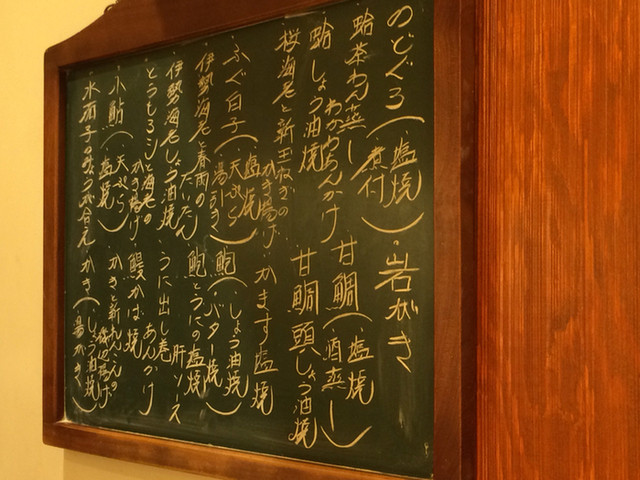 のどぐろ（塩焼 煮付）・岩がき
蛤茶わん蒸し わかめあんかけ
蛤しょう油焼
甘鯛（塩焼 酒蒸し）
甘鯛頭しょう油焼
桜海老と新玉ねぎのかき揚げ
かます塩焼
ふぐ白子（塩焼 天ぷら 湯引き）
鮑（しょう油焼 バター焼）
伊勢海老と春雨のたいたん
鮑とうにの塩焼 肝ソース
伊勢海老しょう油焼
うに出し巻 あんかけ
とうもろこしと海老のかき揚げ
鰻かば焼
小鮎（天ぷら 塩焼）
かきと新れんこんの磯辺揚げ
水茄子のみょうが合え
かき（しょう油焼 湯がき）